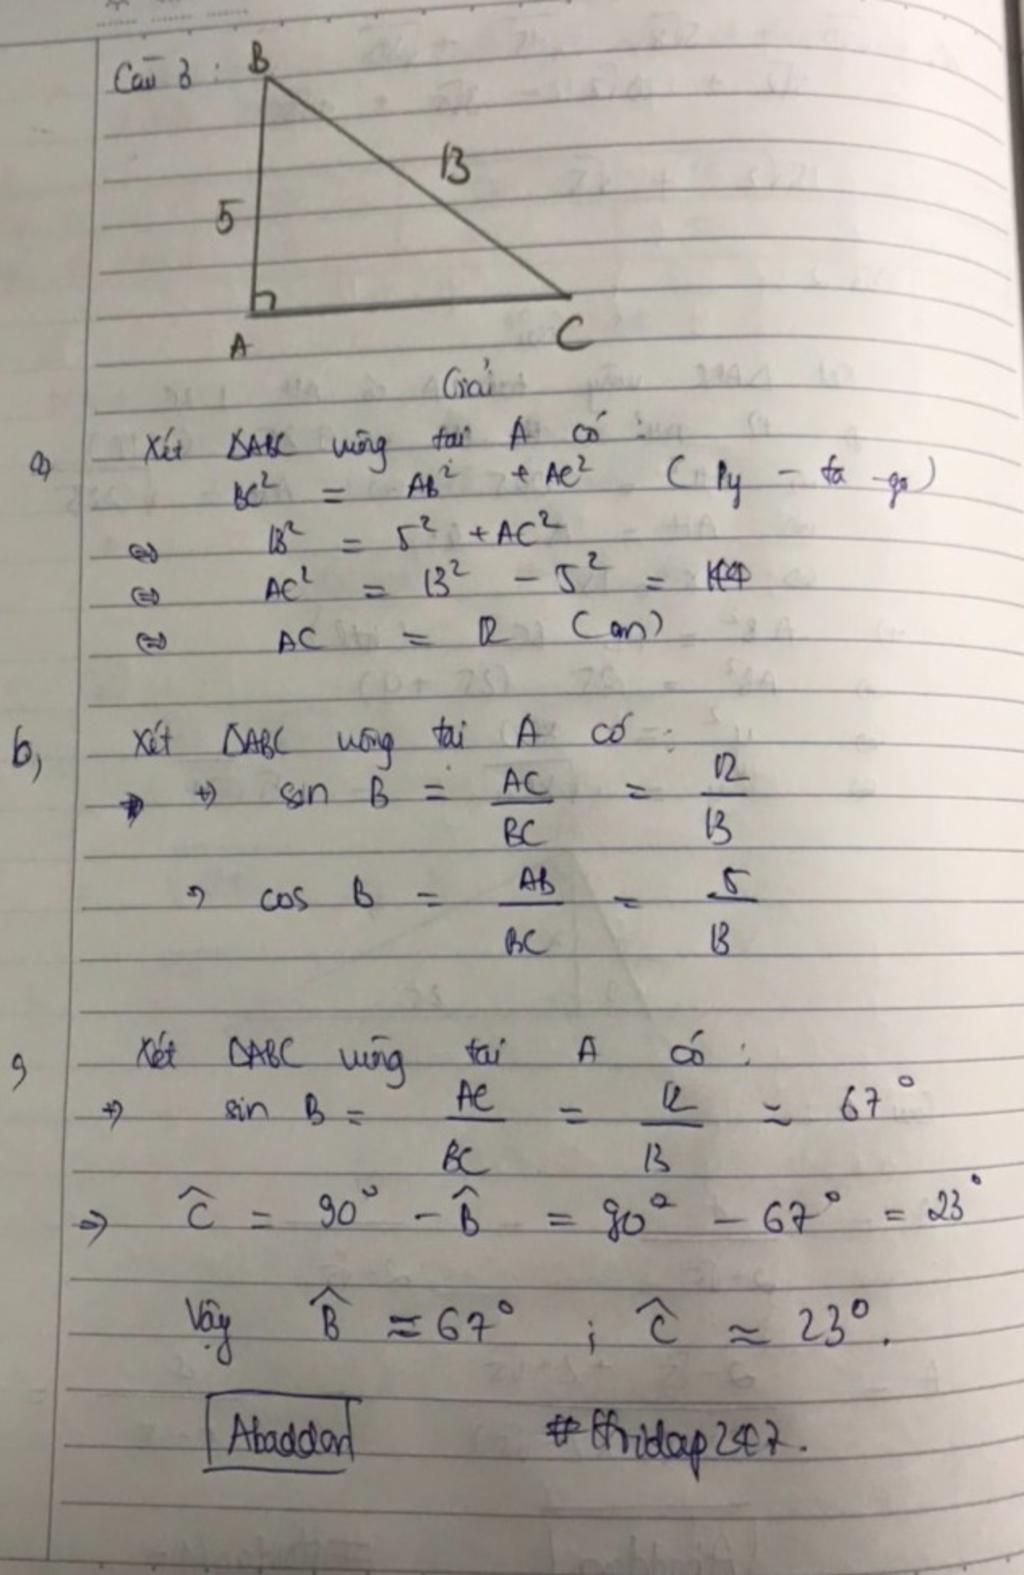 Câu 3 :
B
13
5
A
C
Giải
a, Xét ΔABC vuông tại A có :
BC² = AB² + AC² (Py - ta - go)
⇔ 13² = 5² + AC²
⇔ AC² = 13² - 5² = 144
⇔ AC = 12 (cm)
b, Xét ΔABC vuông tại A có :
+) sin B = AC/BC = 12/13
+) cos B = AB/BC = 5/13
c, Xét ΔABC vuông tại A có :
+) sin B = AC/BC = 12/13 ≈ 67°
⇒ Ĉ = 90° - B̂ = 90° - 67° = 23°
Vậy B̂ ≈ 67° ; Ĉ ≈ 23°.
Abaddon